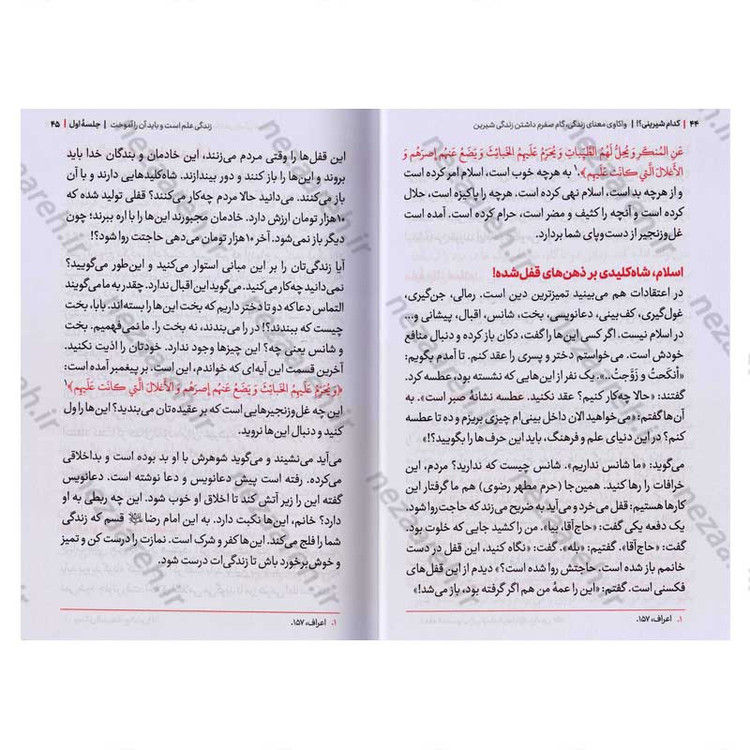 ۴۴ | کدام شیرینی؟! | واکاوی معنای زندگی، گام صفرم داشتن زندگی شیرین
عَنِ المُنكَرِ وَ يُحِلُّ لَهُمُ الطَّيِّباتِ وَ يُحَرِّمُ عَلَيهِمُ الخَبائِثَ وَ يَضَعُ عَنهُم إِصرَهُم وَ
الأَغلالَ الَّتي كانَت عَلَيهِم﴾،۱ به هرچه خوب است، اسلام امر کرده است
و از هرچه بد است، اسلام نهی کرده است. هرچه را پاکیزه است، حلال
کرده است و آنچه را کثیف و مضر است، حرام کرده است. آمده است
غل‌وزنجیر از دست‌وپای شما بردارد.
اسلام، شاه‌کلیدی بر ذهن‌های قفل‌شده!
در اعتقادات هم می‌بینید تمیزترین دین است. رمالی، جن‌گیری،
غول‌گیری، کف‌بینی، دعانویسی، بخت، شانس، اقبال، پیشانی و...
در اسلام نیست. اگر کسی این‌ها را گفت، دکان باز کرده و دنبال منافع
خودش است. می‌خواستم دختر و پسری را عقد کنم. تا آمدم بگویم:
«أنكَحتُ وَ زَوَّجتُ...»، یک نفر از این‌هایی که نشسته بود، عطسه کرد.
گفتند: «حالا چه‌کار کنیم؟ عقد نکنید. عطسه نشانهٔ صبر است.» به
آن‌ها گفتم: «می‌خواهید الان داخل بینی‌ام چیزی بریزم و ده تا عطسه
کنم؟ در این دنیای علم و فرهنگ، باید این حرف‌ها را بگویید؟!»
می‌گوید: «ما شانس نداریم». شانس چیست که ندارید؟ مردم، این
خرافات را رها کنید. همین‌جا (حرم مطهر رضوی) هم ما گرفتار این
کارها هستیم: قفل می‌خرد و می‌آید به ضریح می‌زند که حاجت روا شود.
یک دفعه یکی گفت: «حاج‌آقا، بیا». من را کشید جایی که خلوت بود.
گفت: «حاج‌آقا». گفتیم: «بله». گفت: «نگاه کنید، این قفل در دست
خانمم باز شده است. حاجتش روا شده است؟» دیدم از این قفل‌های
فکسنی است. گفتم: «این را عمهٔ من هم گرفته بود، باز می‌شد!»
۱. اعراف، ۱۵۷.
زندگی علم است و باید آن را آموخت | جلسهٔ اول | ۴۵
این قفل‌ها را وقتی مردم می‌زنند، این خادمان و بندگان خدا باید
بروند و این‌ها را باز کنند و دور بیندازند. شاه‌کلیدهایی دارند و با آن
باز می‌کنند. می‌دانید حالا مردم چه‌کار می‌کنند؟ قفلی تولید شده که
۱۰ هزار تومان ارزش دارد. خادمان مجبورند این‌ها را با اره ببرند؛ چون
دیگر باز نمی‌شود. آخر ۱۰هزار تومان می‌دهی حاجتت روا شود؟!
آیا زندگی‌تان را بر این مبانی استوار می‌کنید و این‌طور می‌گویید؟
نمی‌دانید چه‌کار می‌کنید. می‌گوید این اقبال ندارد. چقدر به ما می‌گویند
التماس دعا که دو تا دختر داریم که بخت این‌ها را بسته‌اند. بابا، بخت
چیست که ببندند؟! در را می‌بندند، نه بخت را. ما نمی‌فهمیم. بخت
و شانس یعنی چه؟ این چیزها وجود ندارد. خودتان را اذیت نکنید.
آخرین قسمت این آیه‌ای که خواندم، این است. بر پیغمبر آمده است:
﴿وَ يُحَرِّمُ عَلَيهِمُ الخَبائِثَ وَ يَضَعُ عَنهُم إِصرَهُم وَ الأَغلالَ الَّتي كانَت عَلَيهِم﴾۱
این چه غل‌وزنجیرهایی است که بر عقیده‌تان می‌بندید؟ این‌ها را ول
کنید و دنبال این‌ها نروید.
می‌آید می‌نشیند و می‌گوید شوهرش با او بد بوده است و بداخلاقی
می‌کرده. رفته است پیش دعانویس و دعا نوشته است. دعانویس
گفته این را زیر آتش کند تا اخلاق او خوب شود. این چه ربطی به او
دارد؟ خانم، این‌ها نکبت دارد. به این امام رضا؟ع؟ قسم که زندگی
شما را فلج می‌کند. این‌ها کفر و شرک است. نمازت را درست کن و تمیز
و خوش‌برخورد باش تا زندگی‌ات درست شود.
۱. اعراف، ۱۵۷.
nezaareh.ir